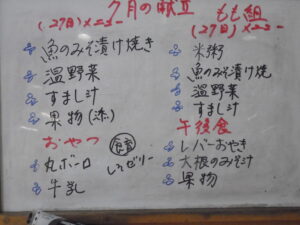 7月の献立
(27日)メニュー
魚のみそ漬け焼き
温野菜
すまし汁
果物(添)
おやつ
丸ボーロ
牛乳
しょゼリー
もも組
(27日)メニュー
米粥
魚のみそ漬け焼
温野菜
すまし汁
午後食
レバーおやき
大根のみそ汁
果物